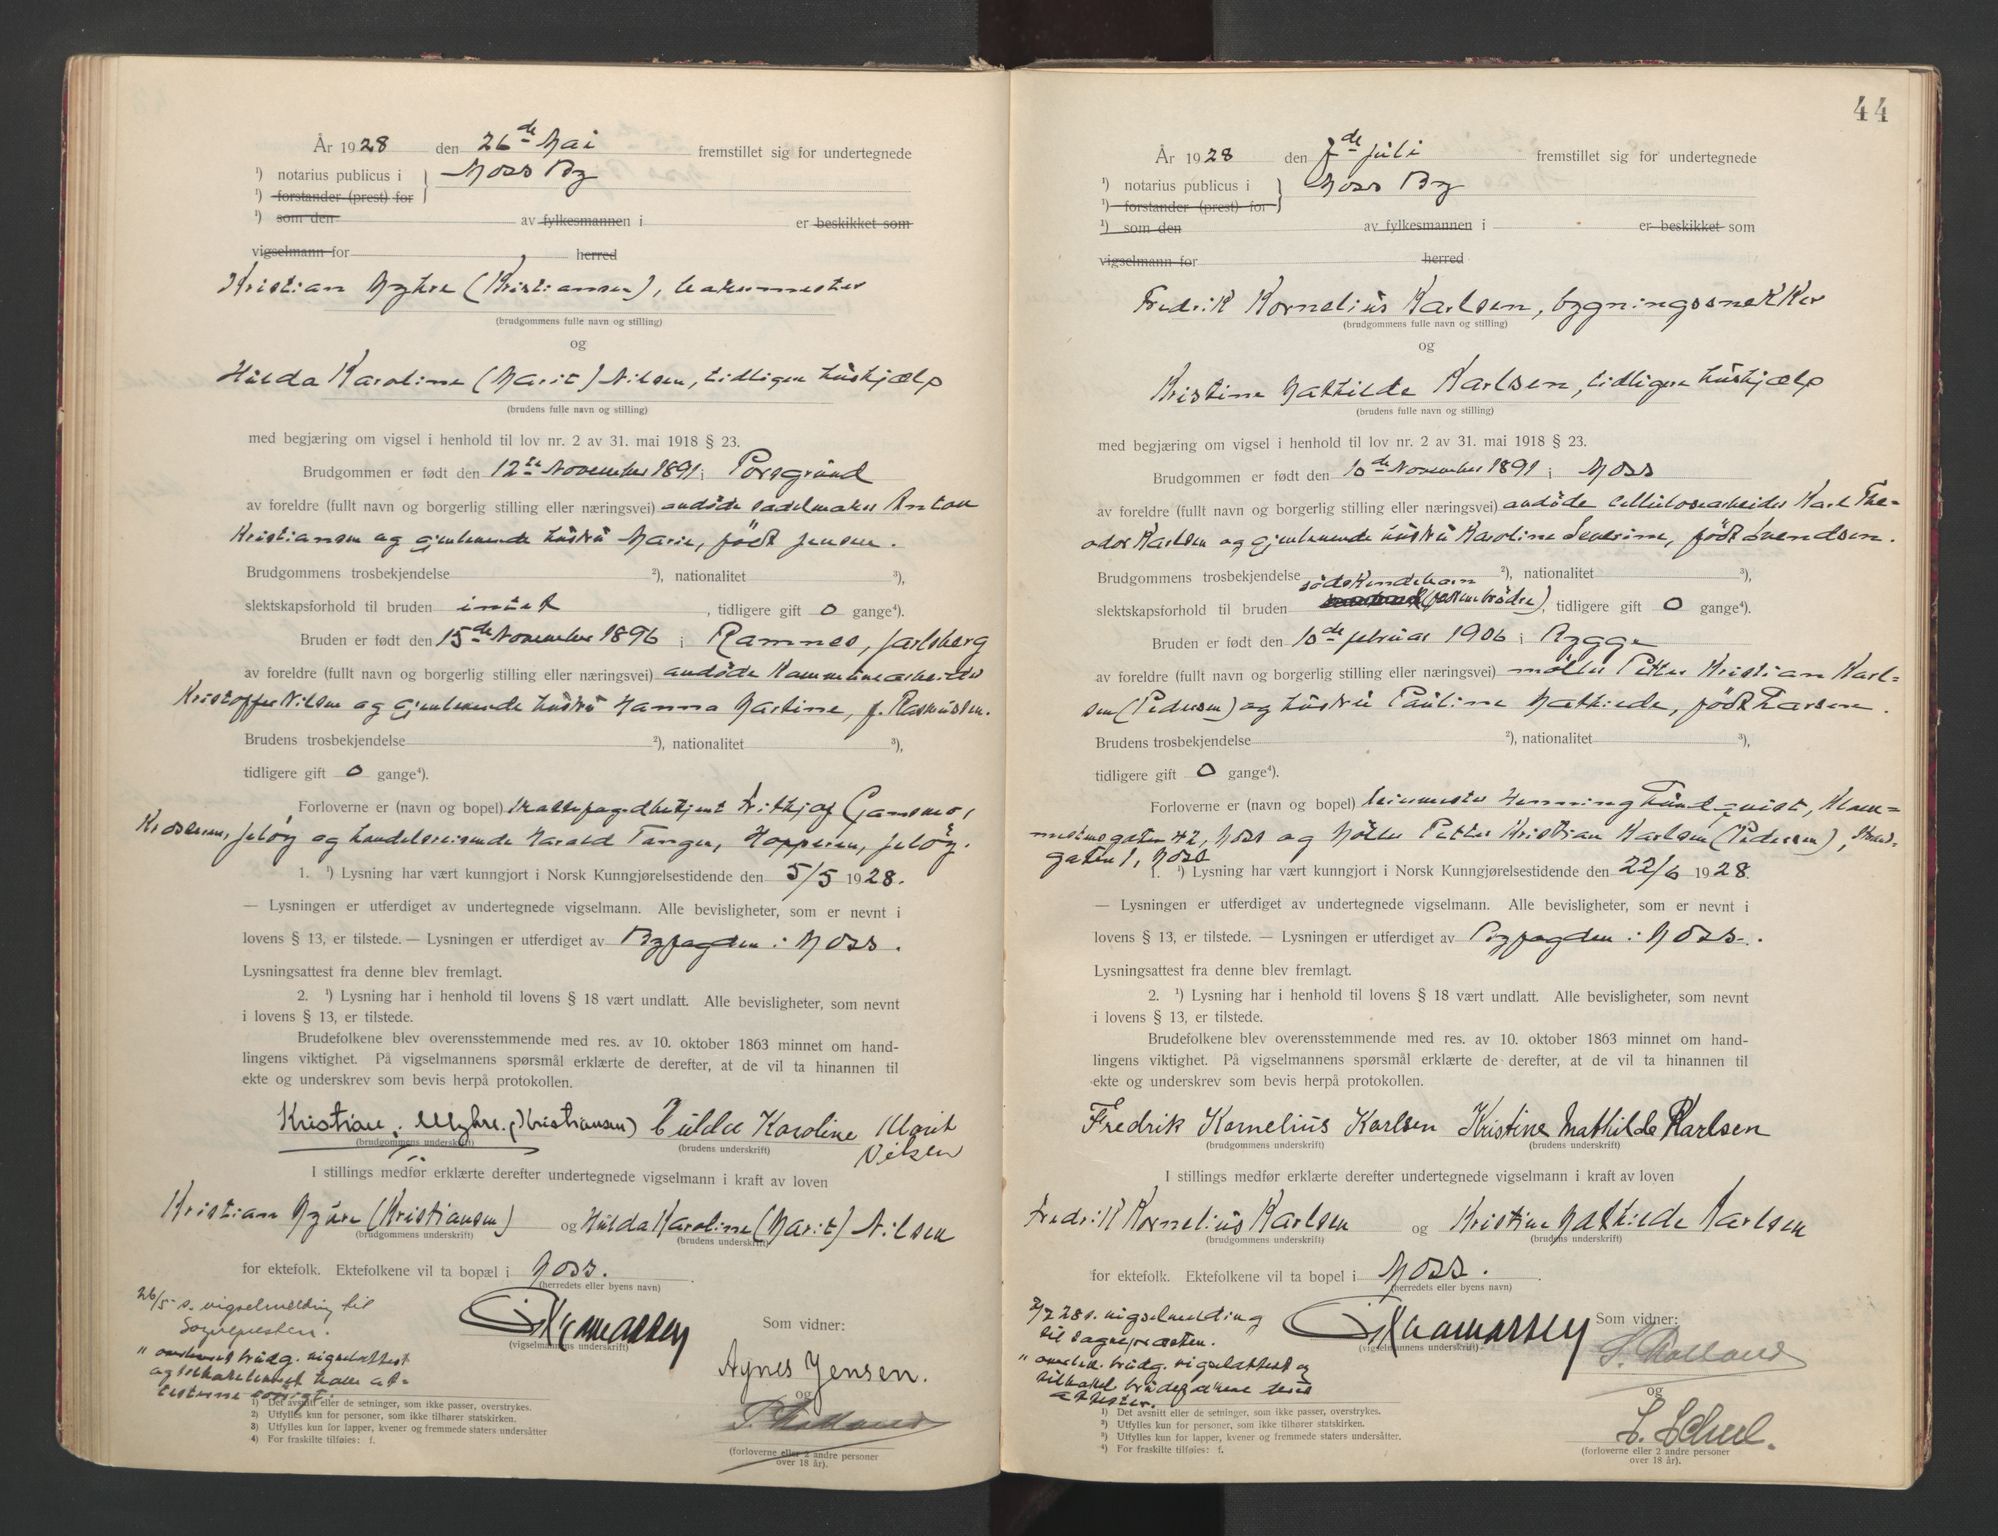 År 1928 den 26de Mai fremstillet sig for undertegnede
¹) notarius publicus i } Moss By
¹) forstander (prest) for
¹) som den av fylkesmannen i er beskikket som
vigselmann for herred
Kristian Myhre (Kristiansen), bakermester
(brudgommens fulle navn og stilling)
og
Hulda Karoline (Marit) Nilsen, tidligere hushjælp
(brudens fulle navn og stilling)
med begjæring om vigsel i henhold til lov nr. 2 av 31. mai 1918 § 23.
Brudgommen er født den 12te November 1891 i Porsgrund
av foreldre (fullt navn og borgerlig stilling eller næringsvei) avdøde sadelmaker Anton
Kristiansen og gjenlevende hustru Marie, født Jensen.
Brudgommens trosbekjendelse ²), nationalitet ³),
slektskapsforhold til bruden intet, tidligere gift 0 gange⁴).
Bruden er født den 15de November 1896 i Ramnes, Jarlsberg
av foreldre (fullt navn og borgerlig stilling eller næringsvei) avdøde Kommunearbeider
Kristoffer Nilsen og gjenlevende hustru Hanna Martine, f. Rasmussen.
Brudens trosbekjendelse ²), nationalitet ³),
tidligere gift 0 gange⁴).
Forloverne er (navn og bopel) Skattefogdbetjent Fritjof Gansmo,
Krosseren, Jeløy og handelsreisende Harald Tangen, Hoppern, Jeløy.
1. ¹) Lysning har vært kunngjort i Norsk Kunngjørelsestidende den 5/5 1928.
— Lysningen er utferdiget av undertegnede vigselmann. Alle bevisligheter, som er nevnt i
lovens § 13, er tilstede. — Lysningen er utferdiget av Byfogden i Moss.
Lysningsattest fra denne blev fremlagt.
2. ¹) Lysning har i henhold til lovens § 18 vært undlatt. Alle bevisligheter, som nevnt
i lovens § 13, er tilstede.
Brudefolkene blev overensstemmende med res. av 10. oktober 1863 minnet om hand-
lingens viktighet. På vigselmannens spørsmål erklærte de derefter, at de vil ta hinannen til
ekte og underskrev som bevis herpå protokollen.
Kristian Myhre (Kristiansen) Hulda Karoline Marit
Nilsen
(brudgommens underskrift) (brudens underskrift)
I stillings medfør erklærte derefter undertegnede vigselmann i kraft av loven
Kristian Myhre (Kristiansen) og Hulda Karoline (Marit) Nilsen
(brudgommens underskrift) (brudens underskrift)
for ektefolk. Ektefolkene vil ta bopæl i Moss.
(herredets eller byens navn)
26/5 s. vigselmelding til
Sognepresten.
(vigselmannens underskrift)
Som vidner:
Agnes Jensen.
og
" brudg. vigselattest
¹) Det avsnitt eller de setninger, som ikke passer, overstrykes.
²) Utfylles kun for personer, som ikke tilhører statskirken.
³) Utfylles kun for lapper, kvener og fremmede staters undersåtter
⁴) For fraskilte tilføies: f.
(forloverne eller 2 andre personer
over 18 år).
44
År 1928 den 7de juli fremstillet sig for undertegnede
¹) notarius publicus i } Moss By
¹) forstander (prest) for
¹) som den av fylkesmannen i er beskikket som
vigselmann for herred
Fredrik Kornelius Karlsen, bygningssnekker
(brudgommens fulle navn og stilling)
og
Kristine Mathilde Karlsen, tidligere hushjælp
(brudens fulle navn og stilling)
med begjæring om vigsel i henhold til lov nr. 2 av 31. mai 1918 § 23.
Brudgommen er født den 10de November 1891 i Moss
av foreldre (fullt navn og borgerlig stilling eller næringsvei) avdøde cellulosearbeider Karl The-
odor Karlsen og gjenlevende hustru Karoline Severine, født Svendsen.
Brudgommens trosbekjendelse ²), nationalitet ³),
sødskendebarn
slektskapsforhold til bruden, tidligere gift 0 gange⁴).
Bruden er født den 10de februar 1906 i Rygge
av foreldre (fullt navn og borgerlig stilling eller næringsvei) møller Petter Kristian Karl-
sen (Pedersen) og hustru Pauline Mathilde, født Larsen.
Brudens trosbekjendelse ²), nationalitet ³),
tidligere gift 0 gange⁴).
Forloverne er (navn og bopel) Henning Lundqvist,
gaten 42, Moss og Møller Petter Kristian Karlsen (Pedersen), Strand-
gaten 1, Moss
1. ¹) Lysning har vært kunngjort i Norsk Kunngjørelsestidende den 22/6 1928.
— Lysningen er utferdiget av undertegnede vigselmann. Alle bevisligheter, som er nevnt i
lovens § 13, er tilstede. — Lysningen er utferdiget av Byfogden i Moss.
Lysningsattest fra denne blev fremlagt.
2. ¹) Lysning har i henhold til lovens § 18 vært undlatt. Alle bevisligheter, som nevnt
i lovens § 13, er tilstede.
Brudefolkene blev overensstemmende med res. av 10. oktober 1863 minnet om hand-
lingens viktighet. På vigselmannens spørsmål erklærte de derefter, at de vil ta hinannen til
ekte og underskrev som bevis herpå protokollen.
Fredrik Kornelius Karlsen Kristine Mathilde Karlsen
(brudgommens underskrift) (brudens underskrift)
I stillings medfør erklærte derefter undertegnede vigselmann i kraft av loven
Fredrik Kornelius Karlsen og Kristine Mathilde Karlsen
(brudgommens underskrift) (brudens underskrift)
for ektefolk. Ektefolkene vil ta bopel i Moss.
(herredets eller byens navn)
7/7 28 s. vigselmelding
til sognepresten.
(vigselmannens underskrift)
Som vidner:
og
" brudg. vigselattest og
¹) Det avsnitt eller de setninger, som ikke passer, overstrykes.
²) Utfylles kun for personer, som ikke tilhører statskirken.
³) Utfylles kun for lapper, kvener og fremmede staters undersåtter.
⁴) For fraskilte tilføies: f.
(forloverne eller 2 andre personer
over 18 år).